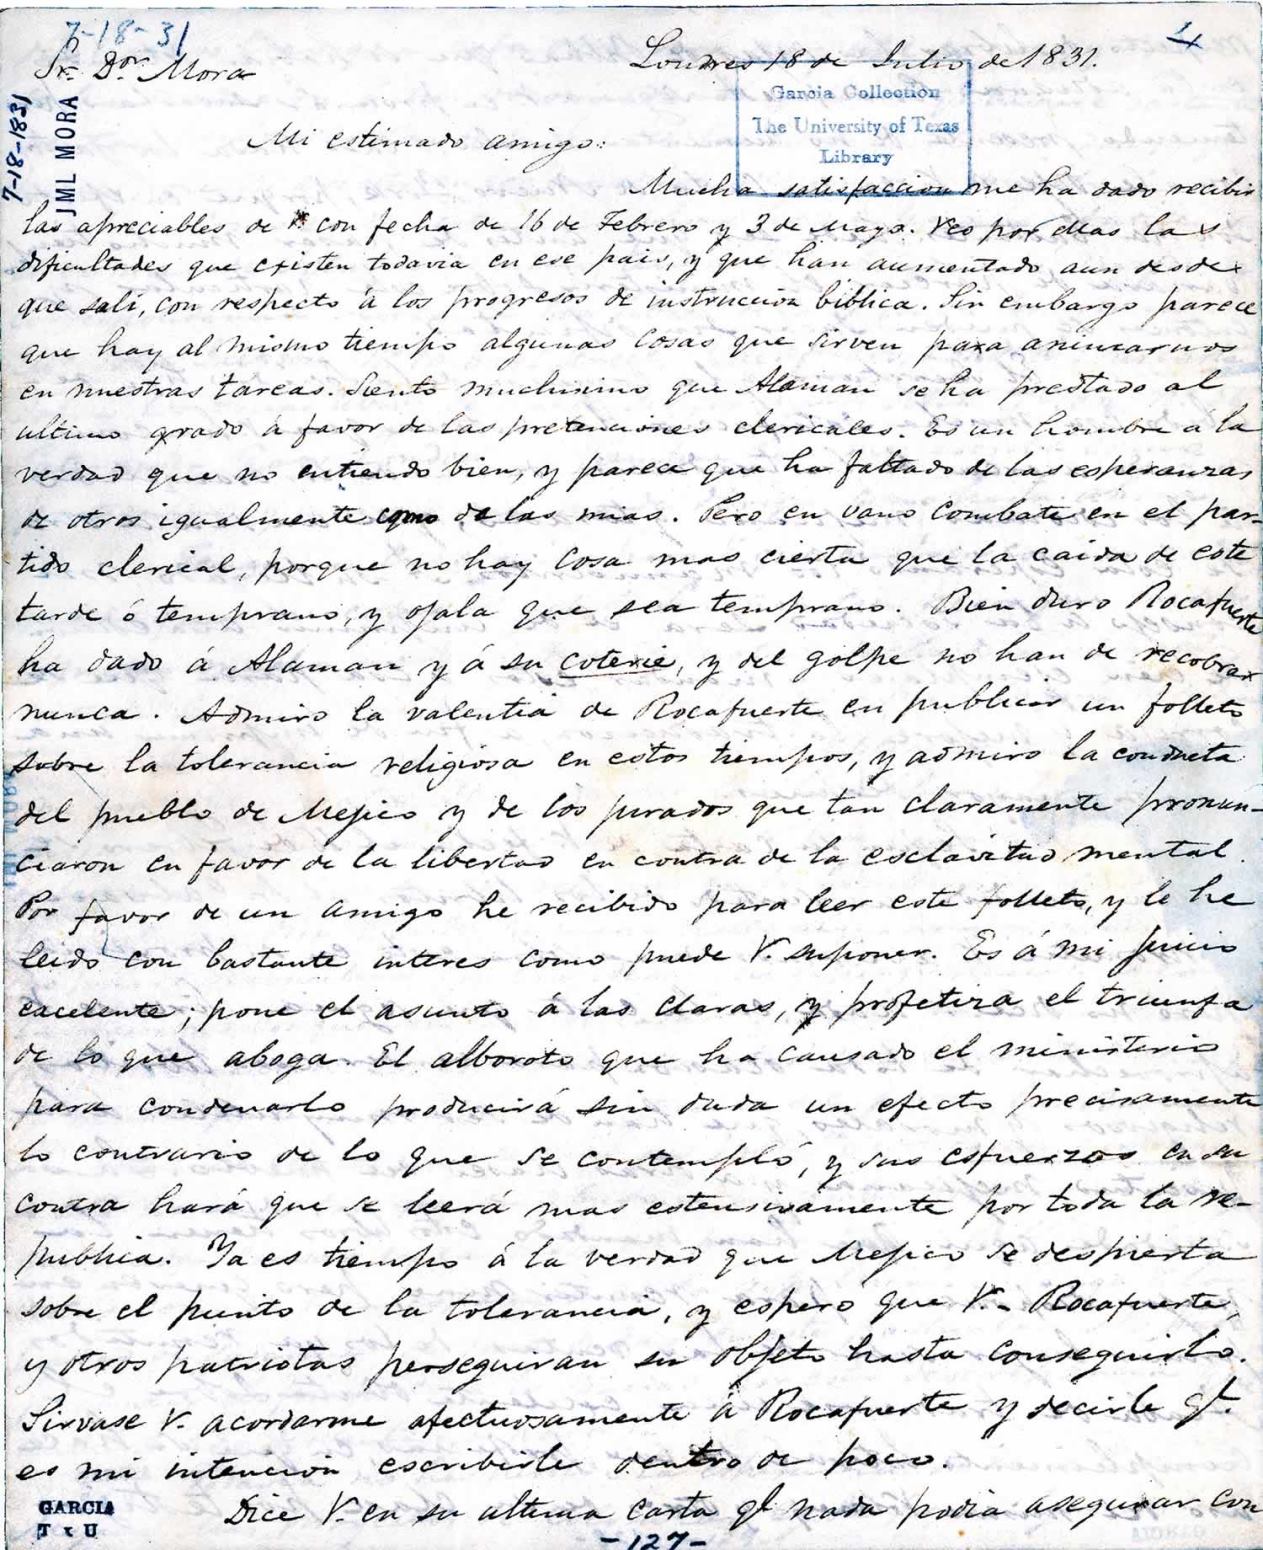 7-18-31
4
Sr. Dor. Mora
Londres 18 de Julio de 1831.
7-18-1831
JML MORA
Garcia Collection
The University of Texas
Library
Mi estimado amigo:
Mucha satisfaccion me ha dado recibir
las apreciables de V. con fecha de 16 de Febrero y 3 de Mayo. Veo por ellas las
dificultades que existen todavia en ese pais, y que han aumentado aun desde
que salí, con respecto á los progresos de instruccion biblica. Sin embargo parece
que hay al mismo tiempo algunas cosas que sirven para animarnos
en nuestras tareas. Siento muchisimo que Alaman se ha prestado al
ultimo grado á favor de las pretenciones clericales. Es un hombre á la
verdad que no entiendo bien, y parece que ha faltado de las esperanzas
de otros igualmente como de las mias. Pero en vano combate en el par-
tido clerical, porque no hay cosa mas cierta que la caida de este
tarde ó temprano, y ojala que sea temprano. Bien duro Rocafuerte
ha dado á Alaman y á su coterie, y del golpe no han de recobrar
nunca. Admiro la valentia de Rocafuerte en publicar un folleto
sobre la tolerancia religiosa en estos tiempos, y admiro la conducta
del pueblo de Mejico y de los jurados que tan claramente pronun-
ciaron en favor de la libertad en contra de la esclavitud mental.
Por favor de un amigo he recibido para leer este folleto, y le he
leido con bastante interes como puede V. suponer. Es á mi juicio
excelente; pone el asunto á las claras, y profetiza el triunfo
de lo que aboga. El alboroto que ha causado el ministerio
para condenarlo producirá sin duda un efecto precisamente
lo contrario de lo que se contempló, y sus esfuerzos en su
contra hará que se leerá mas estensivamente por toda la re-
publica. Ya es tiempo á la verdad que Mejico se despierta
sobre el punto de la tolerancia, y espero que V. Rocafuerte,
y otros patriotas perseguiran su objeto hasta conseguirlo.
Sirvase V. acordarme afectuosamente á Rocafuerte y decirle qe.
es mi intencion escribirle dentro de poco.
Dice V. en su ultima carta qe nada podia asegurar con
GARCIA
T x U
-127-